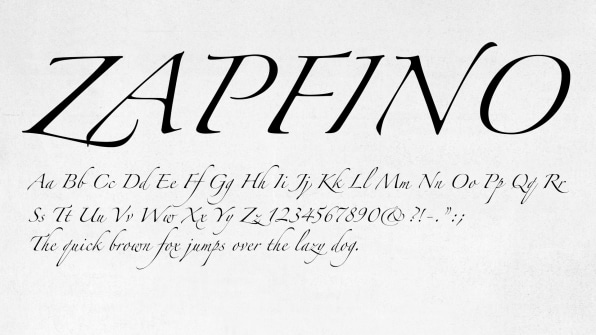 ZAPFINO
Aa Bb Cc Dd Ee Ff Gg Hh Ii Jj Kk Ll Mm Nn Oo Pp Qq Rr
Ss Tt Uu Vv Ww Xx Yy Zz 1234567890@?!-.":;
The quick brown fox jumps over the lazy dog.